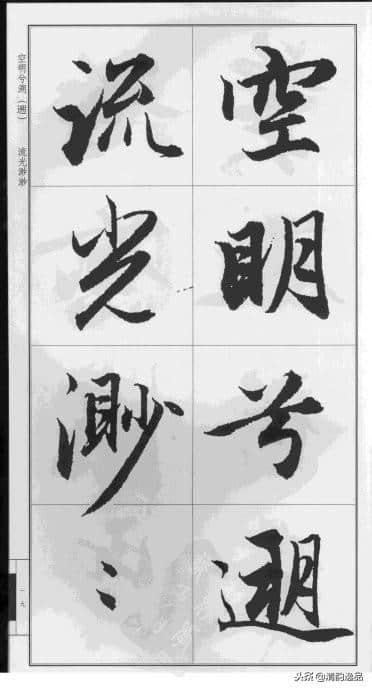 空明兮遡
流光渺〻
空明兮溯（遡）　流光渺渺
一九
头条@清韵逸品